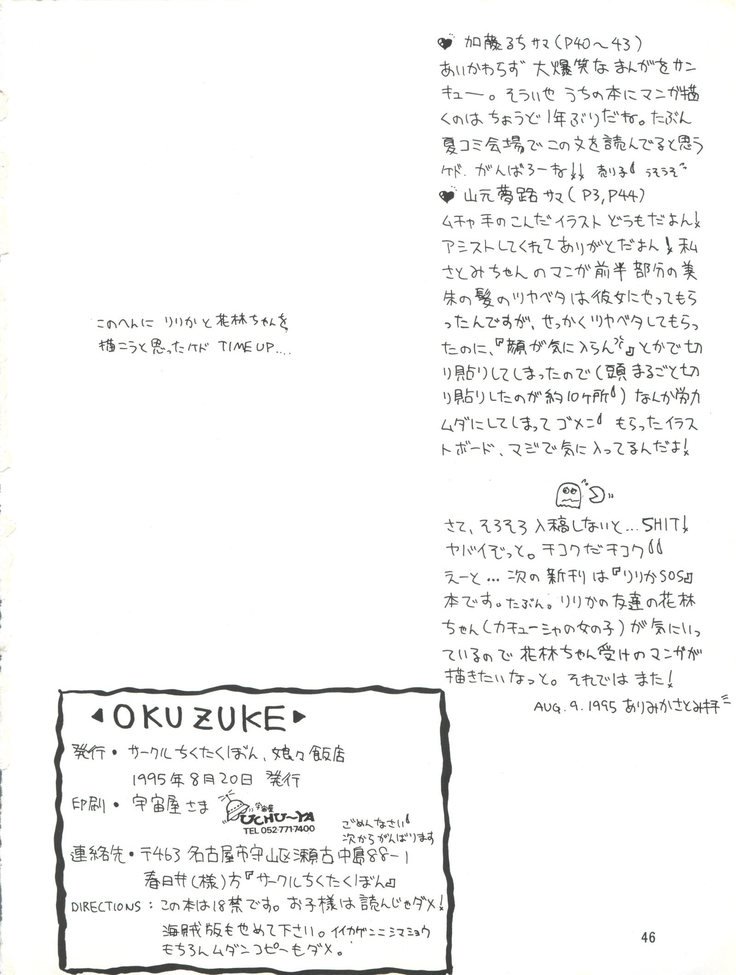 ♥ 加藤るち サマ (P40～43)
あいかわらず 大爆笑な まんがを サン
キュー。そういや うちの本にマンガ描
くのは ちょうど 1年ぶりだね。たぶん
夏コミ会場で この文を読んでると思う
ケド. がんばろーね!! 売り子 うそうそ
♥ 山元夢路 サマ ( P3, P44)
ムチャ 手のこんだ イラスト どうもだよん!
アシストしてくれて ありがとだよん! 私
さとみちゃん のマンガ 前半部分の美
朱の髪のツヤベタは 彼女にやってもら
ったんですが、せっかくツヤベタしてもらっ
たのに、『顔が気に入らん』とかで切
り貼りしてしまったので (頭まるごと切
り貼りしたのが 約10ヶ所) なんか労力
ムダにしてしまって ゴメン もらった イラス
トボード、マジで気に入ってるんだよ!
さて、そろそろ 入稿しないと… SHIT!
ヤバイぞっと。チコクだチコク
えーと… 次の 新刊 は『りりかSOS』
本です。たぶん。りりかの友達の花林
ちゃん (カチューシャの女の子) が 気にいっ
ているので 花林ちゃん 受けの マンガが
描きたいなっと。それでは また!
AUG. 9. 1995 ありみかさとみ拝
このへんに りりか と 花林ちゃんを
描こうと思ったケド TIME UP....
◀OKUZUKE▶
発行・ サークルちくたくぼん、娘々飯店
1995年8月20日 発行
印刷・ 宇宙屋さま 宇宙屋 UCHU～YA
TEL 052-771-7400
ごめんなさい
次からがんばります
連絡先・〒463 名古屋市守山区瀬古中島88-1
春日井(様)方『サークルちくたくぼん』
DIRECTIONS : この本は18禁です。お子様は読んじゃダメ!
海賊版もやめて下さい。イイカゲンニシマショウ
もちろんムダンコピーもダメ。
46